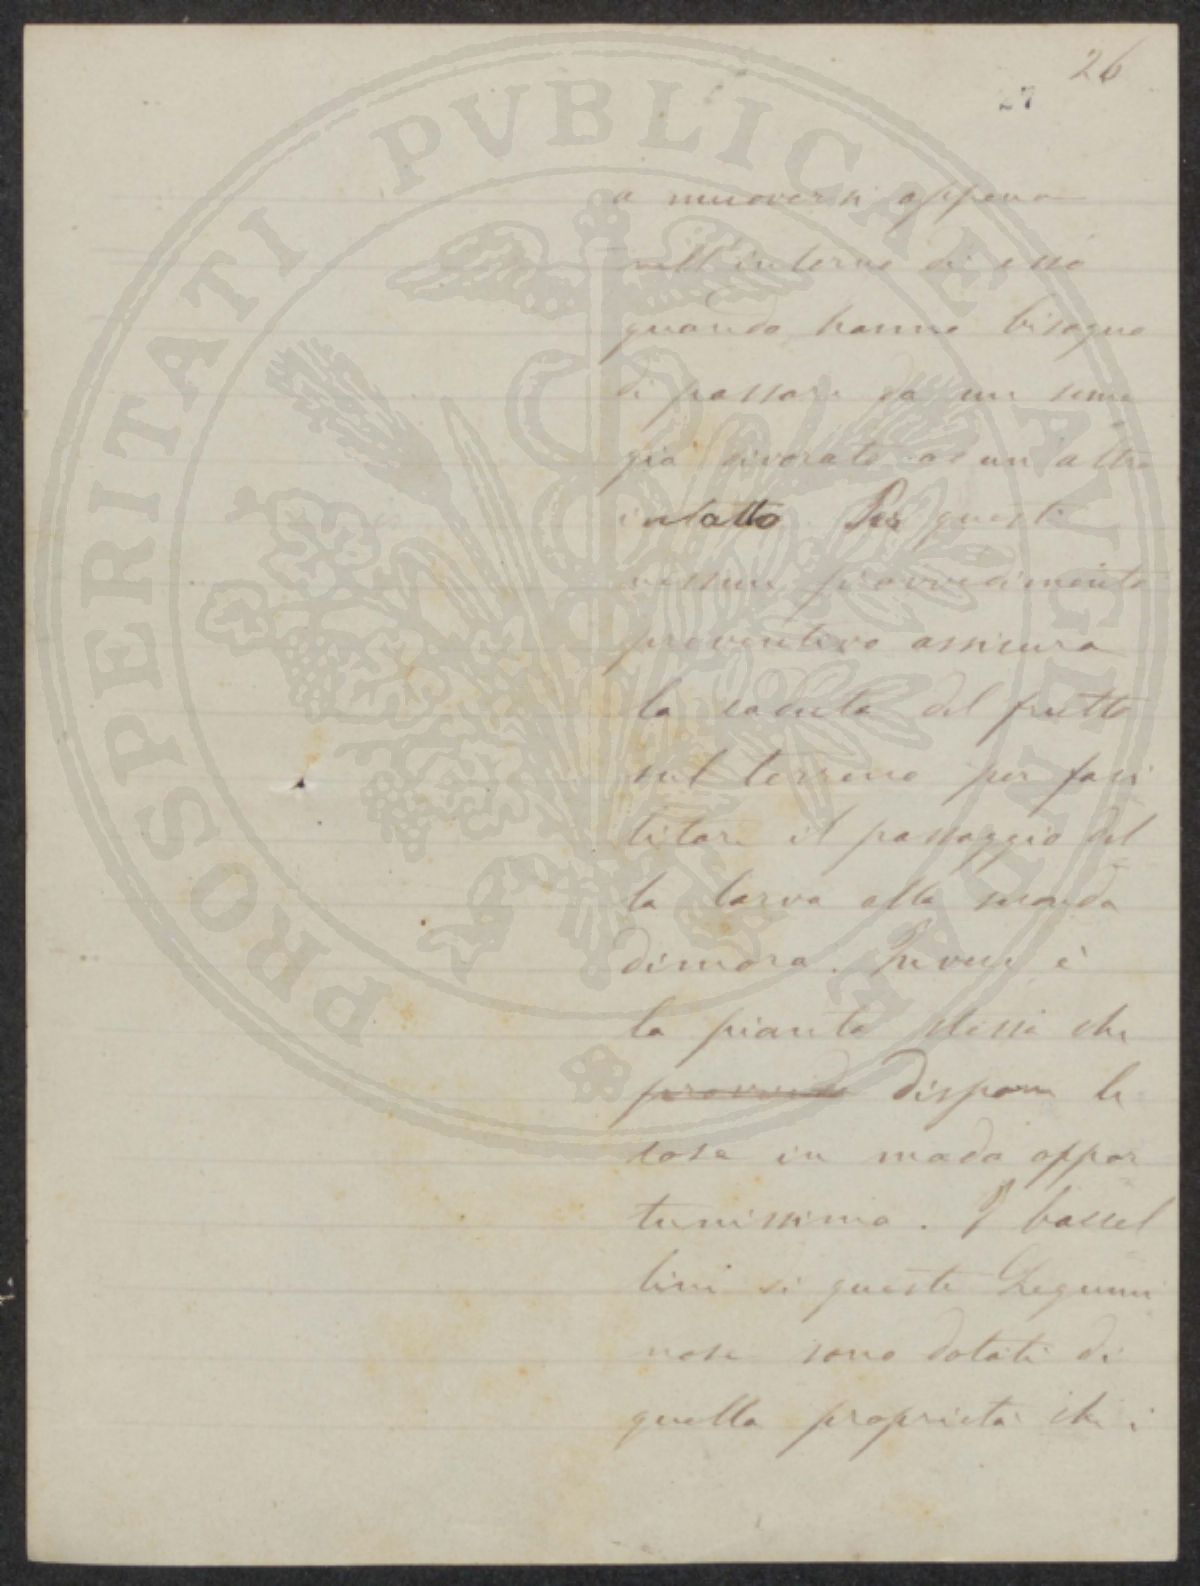 26
27
a muoversi appena
nell'interno di esso
quando hanno bisogno
di passare da un seme
già divorato ad un altro
intatto. Per questi
nessun provvedimento
preventivo assicura
la caduta del frutto
sul terreno per faci
litare il passaggio del
la larva alla seconda
dimora. Invece è
la pianta stessa che
provvede dispone le
cose in modo oppor
tunissimo. I baccel
lini di queste Legumi
nose sono dotati di
quella proprietà che i
PROSPERITATI PVBLICAE AVGENDAE